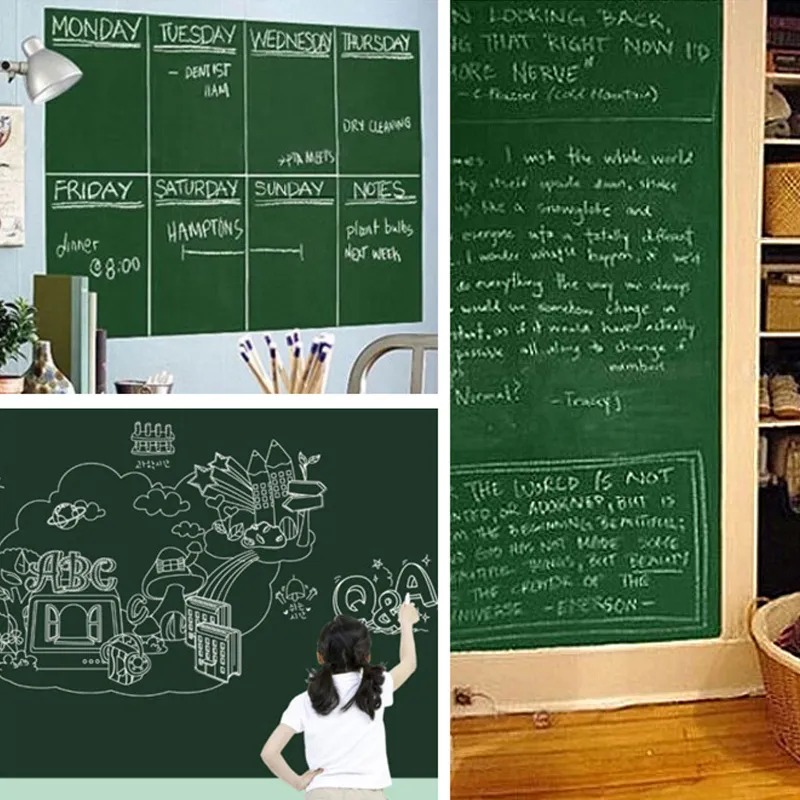 MONDAY
TUESDAY
WEDNESDAY
THURSDAY
- DENTIST
11AM
DRY CLEANING
→PTA MEETS
FRIDAY
SATURDAY
SUNDAY
NOTES
dinner
@8:00
HAMPTONS
plant bulbs
NEXT WEEK
과학시간
ABC
Q&A
쉬는
시간
N LOOKING BACK,
NG THAT "RIGHT NOW I'D
MORE NERVE"
- C. Frazier (Cold Mountain)
mes. I wish the whole world
tip itself upside down, shake
up like a snowglobe and
everyone into a totally different
I wonder what'd happen, &
do everything the way we always
would we somehow change in
as if it would have actually
possible all along to change if
Normal?
- Tracey J
THE WORLD IS NOT
OR ADORNED, BUT IS
M THE BEGINNING BEAUTIFUL;
GOD HAS NOT MADE SOME
THINGS, BUT BEAUTY
THE CREATOR OF THE
UNIVERSE - EMERSON -